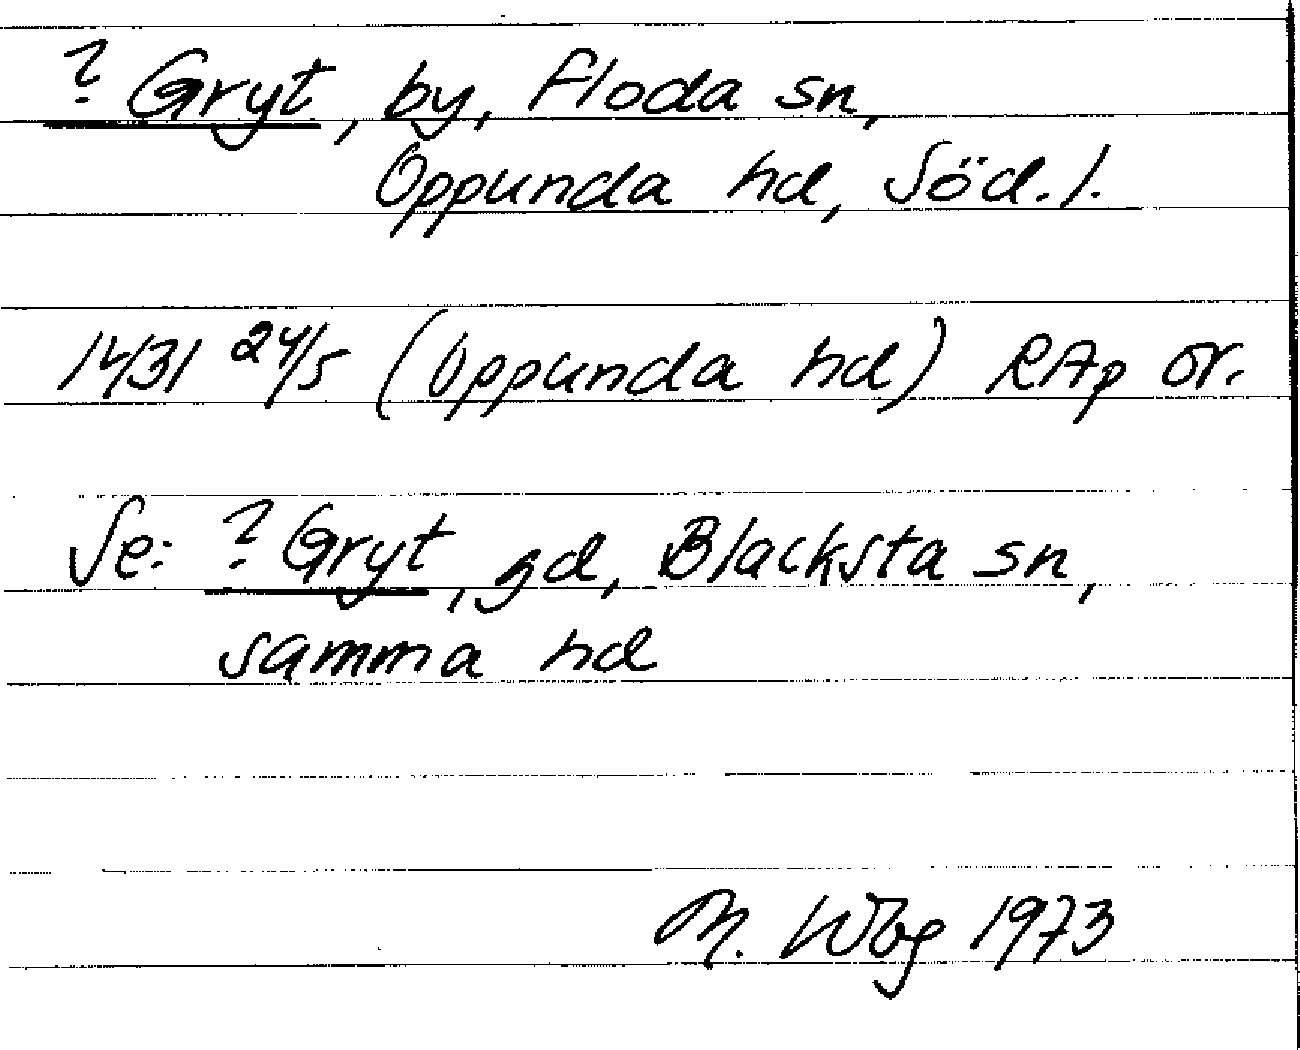 ? Gryt, by, Floda sn,
Oppunda hd, Söd.l.
1431 24/5 (Oppunda hd) RAp or.
Se: ? Gryt, gd, Blacksta sn,
samma hd
M. Wbg 1973